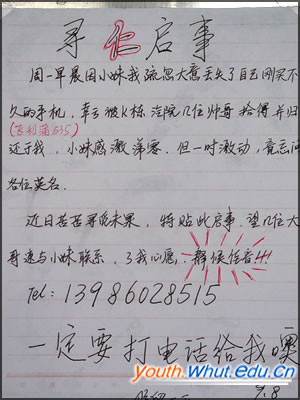 寻人启事
周一早晨因小妹我疏忽大意丢失了自己刚买不
久的手机,幸亏被K栋汽院几位帅哥拾得并归
(飞利浦635)
还于我,小妹感激涕零.但一时激动,竟忘问
各位英名.
近日苦苦寻觅未果,特贴此启事.望几位大
哥速与小妹联系,了我心愿.静候佳音!!!
Tel: 13986028515
一定要打电话给我噢
9.8
Youth.Whut.edu.cn